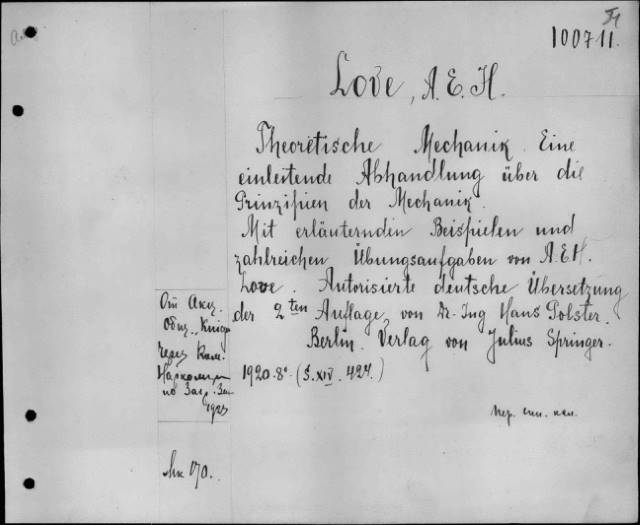 100711.
Love, A. E. H.
Theoretische Mechanik. Eine
einleitende Abhandlung über die
Prinzipien der Mechanik.
Mit erläuternden Beispielen und
zahlreichen Übungsaufgaben von A.E.H.
Love. Autorisierte deutsche Übersetzung
der 2ten Auflage, von Dr-Ing Hans Polster.
Berlin. Verlag von Julius Springer.
1920. 8° (S. XIV. 424.)
От Акц.
Общ. „Книга
Через Ком.
по Загр.
1923